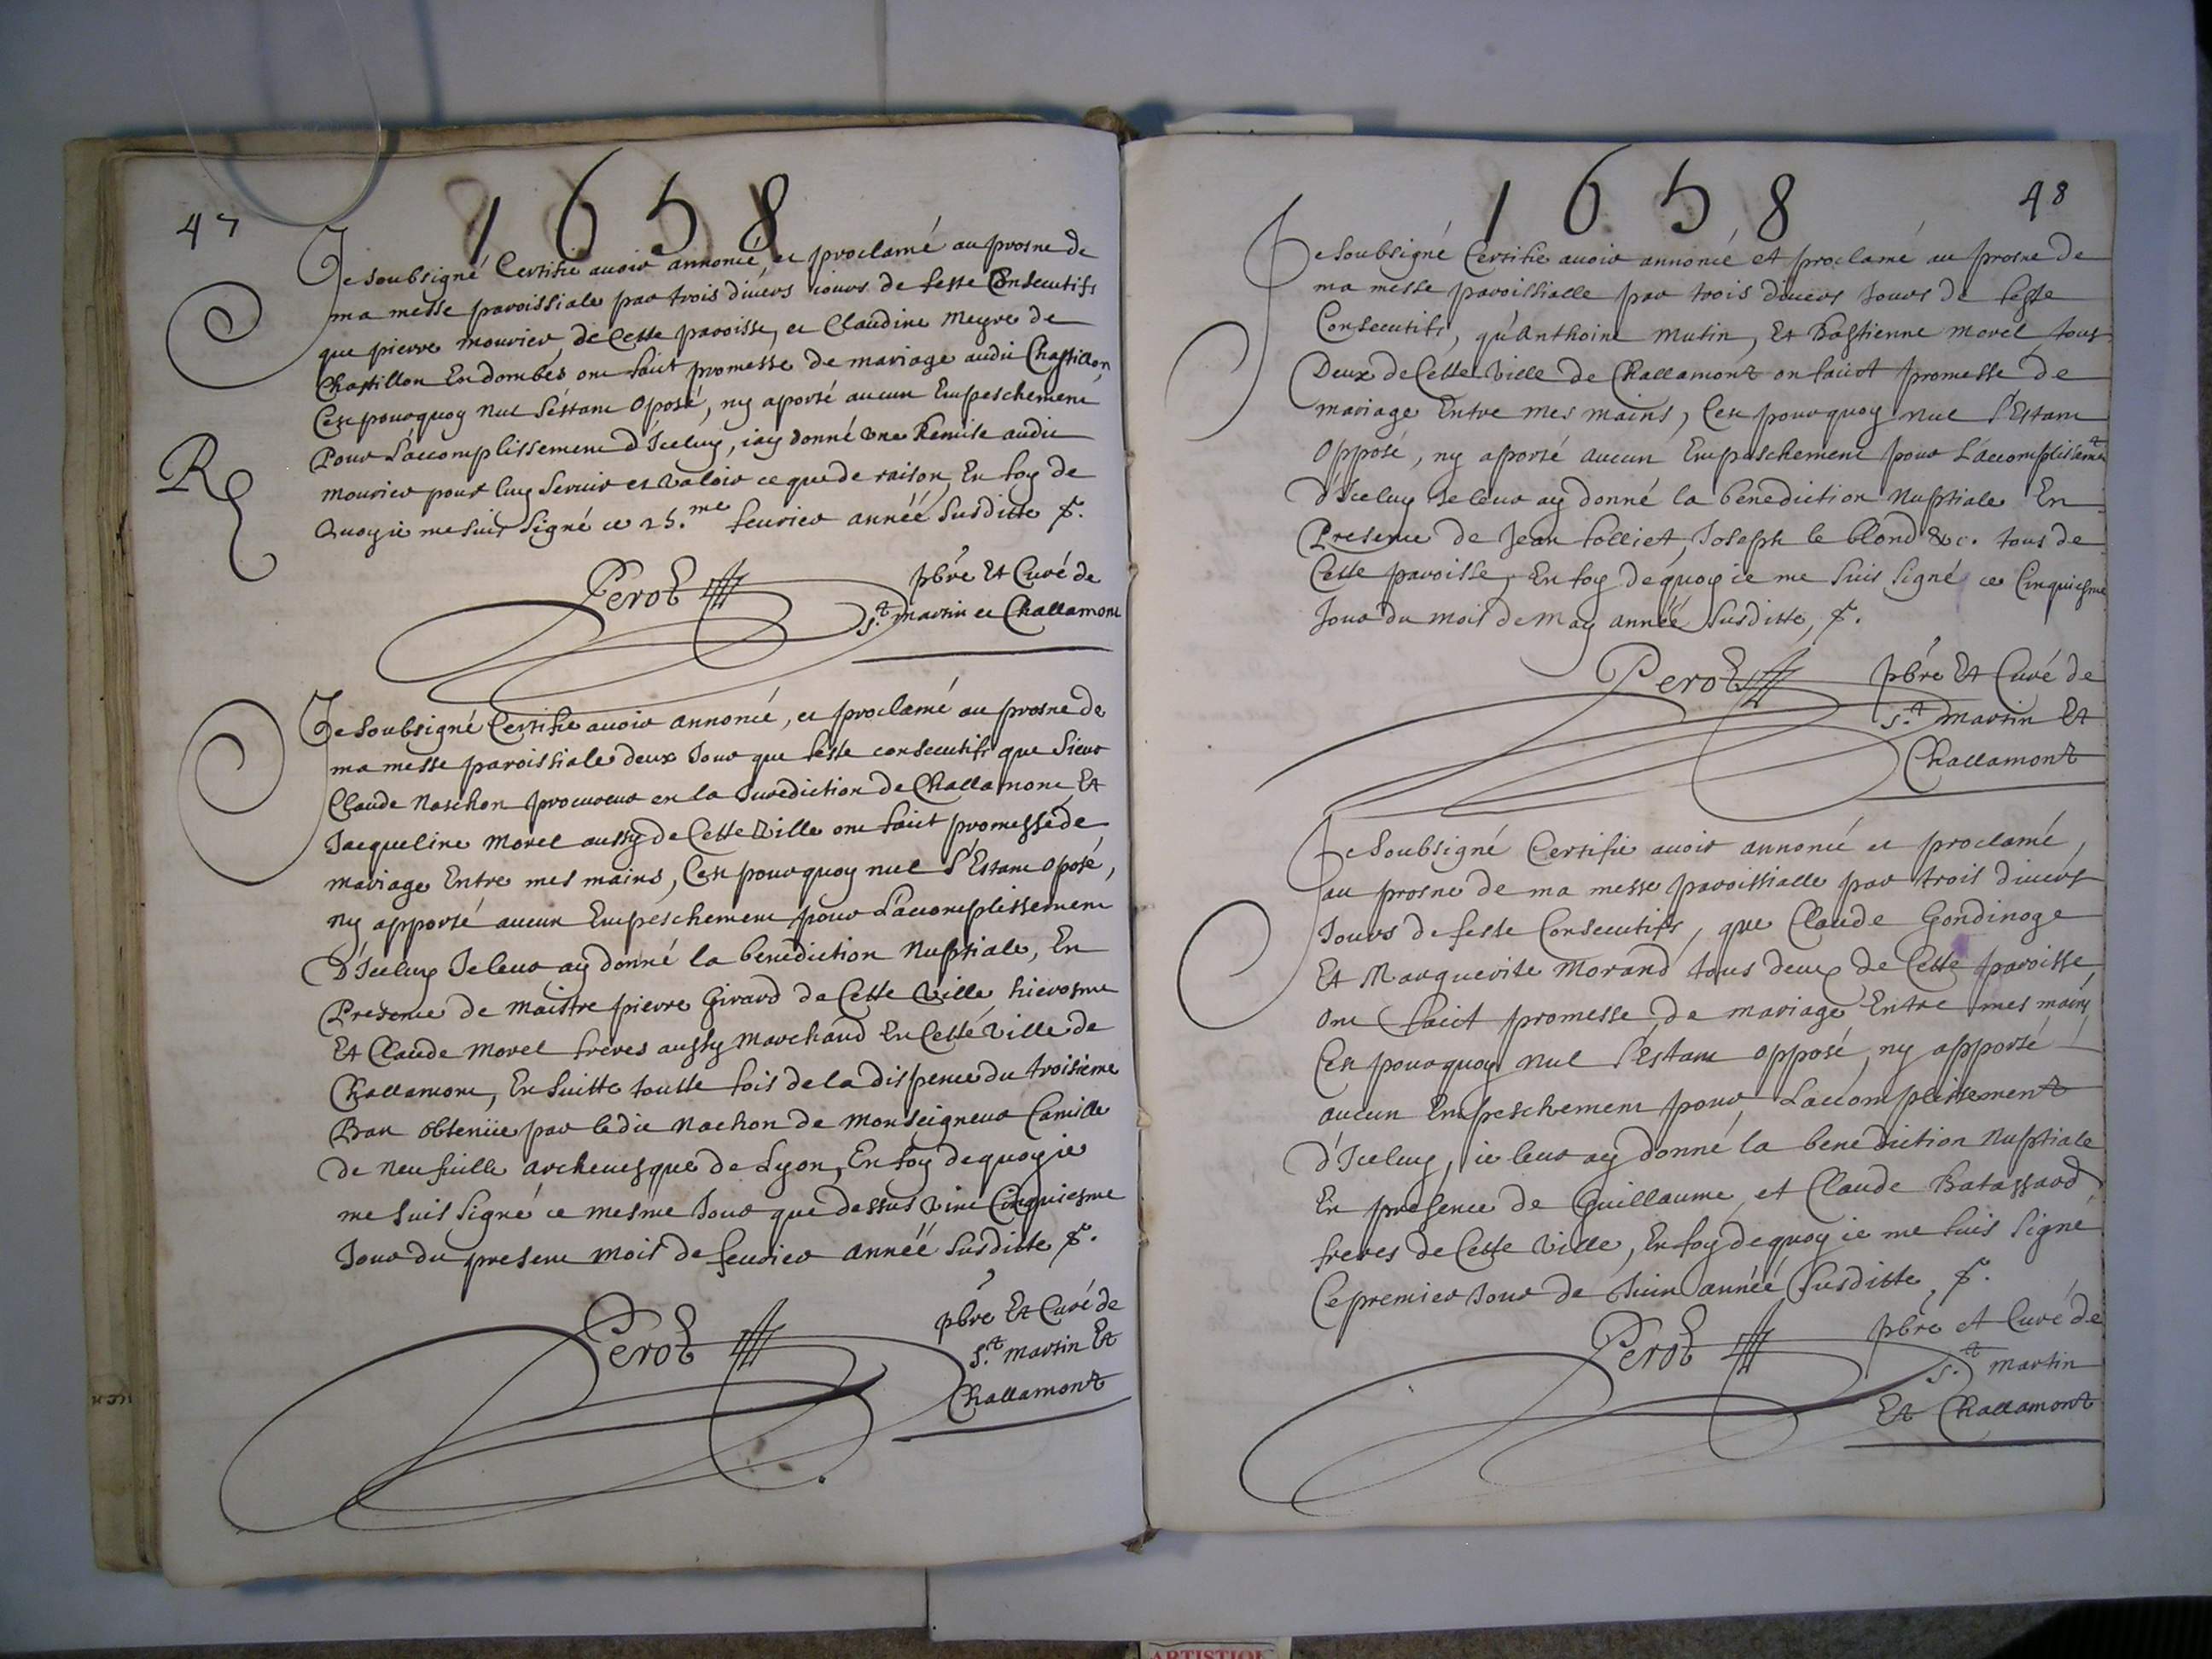 1658
47
Je soubsigné Certifie auoir annoncé, et proclamé au prosne de
ma messe paroissiale par trois diuers iours de feste Consecutifs
que pierre mourier, de Cette paroisse, et Claudine Meyre de
Chastillon En dombes ont faict promesse de mariage audit Chastillon,
C'est pourquoy Nul s'estant oposé, ny aporté aucun Empeschement
Pour L'accomplissement d'Iceluy, i'ay donné vne Remise audit
mourier pour luy seruir et valoir ce que de raison, En foy de
Quoy ie me suis signé ce 25.me feurier annéé susditte &.
R
Perot
pbre Et Curé de
s.t martin et Challamont
Je soubsigné Certifie auoir annoncé, et proclamé au prosne de
ma messe paroissiale deux Jour que feste consecutifs que sieur
Claude Naschon procureur en la Jurediction de Challamont, Et
Jacqueline Morel aussy de Cette Ville ont faict promesse de
mariage Entre mes mains, C'est pourquoy nul s'Estant oposé,
ny apporté aucun Empeschement pour L'accomplissement
D'Iceluy Je leur ay donné la benediction Nuptiale, En
Presence de Maistre pierre Girard de Cette Ville, hierosme
Et Claude Morel freres aussy Marchand En Cette Ville de
Challamont, En suitte toutte fois de la dispence du troisieme
Ban obtenüe par ledit Nachon de Monseigneur Camille
de Neufuille archeuesque de Lyon, En foy de quoy ie
me suis signé ce mesme Jour que dessus Vint Cinquiesme
Jour du present mois de feurier annéé susditte &.
Perot
pbre Et Curé de
s.t martin Et
Challamont
1658
48
Je soubsigné Certifie auoir annoncé et proclamé au prosne de
ma messe paroissialle par trois diuers Jours de feste
Consecutifs, qu'Anthoine Mutin, Et Bastienne Morel tous
Deux de Cette Ville de Challamont on faict promesse de
mariage Entre mes mains, C'est pourquoy nul s'Estant
Opposé, ny aporté aucun Empeschement pour L'accomplissemt
d'Iceluy Je leur ay donné la benediction Nuptiale En
Presence de Jean folliet, Joseph le blond &c. tous de
Cette paroisse, En foy de quoy ie me suis signé ce Cinquiesme
Jour du mois de May annéé susditte, &.
Perot
pbre Et Curé de
s.t Martin Et
Challamont
Je soubsigné Certifie auoir annoncé et proclamé,
au prosne de ma messe paroissialle par trois diuers
Jours de feste Consecutifs, que Claude Gondinoge
Et Marguerite Morand tous deux de Cette paroisse,
ont faict promesse de mariage Entre mes mains
C'est pourquoy Nul s'Estant opposé, ny apporté
aucun Empeschement pour L'accomplissement
d'Iceluy, ie leur ay donné la benediction Nuptiale
En presence de Guillaume, et Claude Batassard,
freres de Cette Ville, En foy de quoy ie me suis signé
Ce premier Jour de Juin annéé susditte, &.
Perot
pbre et Curé de
s.t martin
Et Challamont
ARTISTIQ